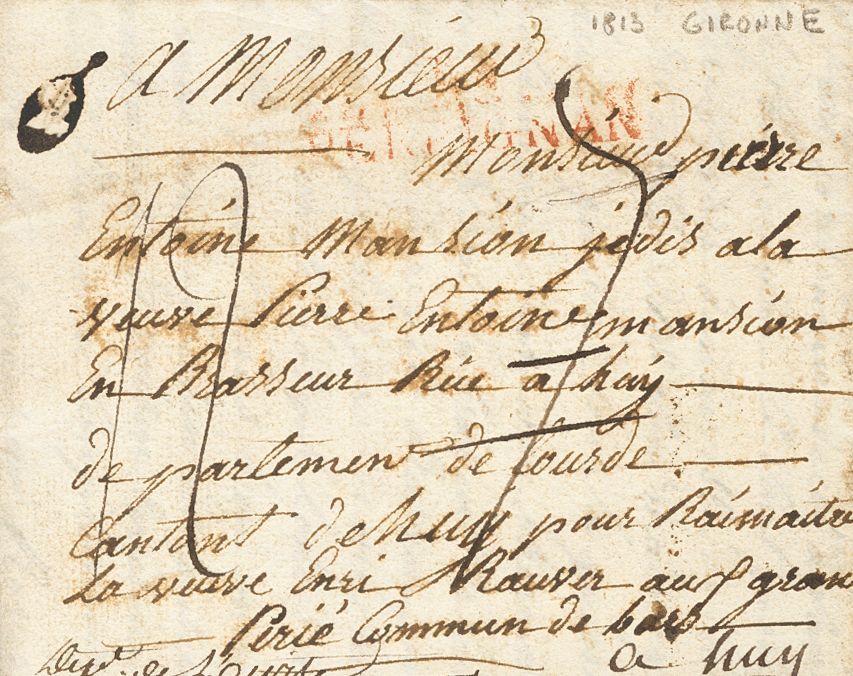 1813 GIRONNE
a Monsieur
PERPIGNAN
Monsieur pierre
Entoine Mansion jedis ala
veuve Pierre Entoine mansion
En Brasseur Rüe a huÿ
de partemen de Lourde
Canton de huy pour Raimaitre
La veuve Enri Rauver au gran
Perié Commun de bas
a huy